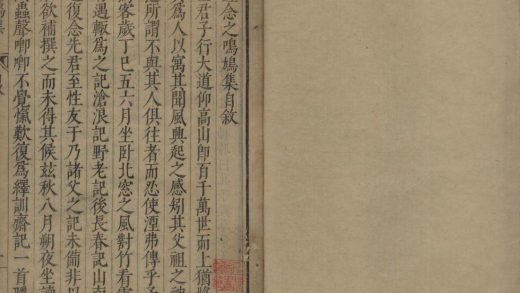 念之鳴鳩集自敘
君子行大道仰高山卽百千萬世而上猶
為人以寓其聞風興起之感矧其父祖之
道所謂不與其人俱往者而忍使湮弗傳乎
客歲丁巳五六月坐卧北窓之風對竹看
遇輙為之記滄浪記野老記後長春記山
復念先君至性友于乃諸父之記未備非以
欲補撰之而未得其候玆秋八月朔夜坐讀
蟲聲唧唧不覺愾歎復為繹訓齋記一首